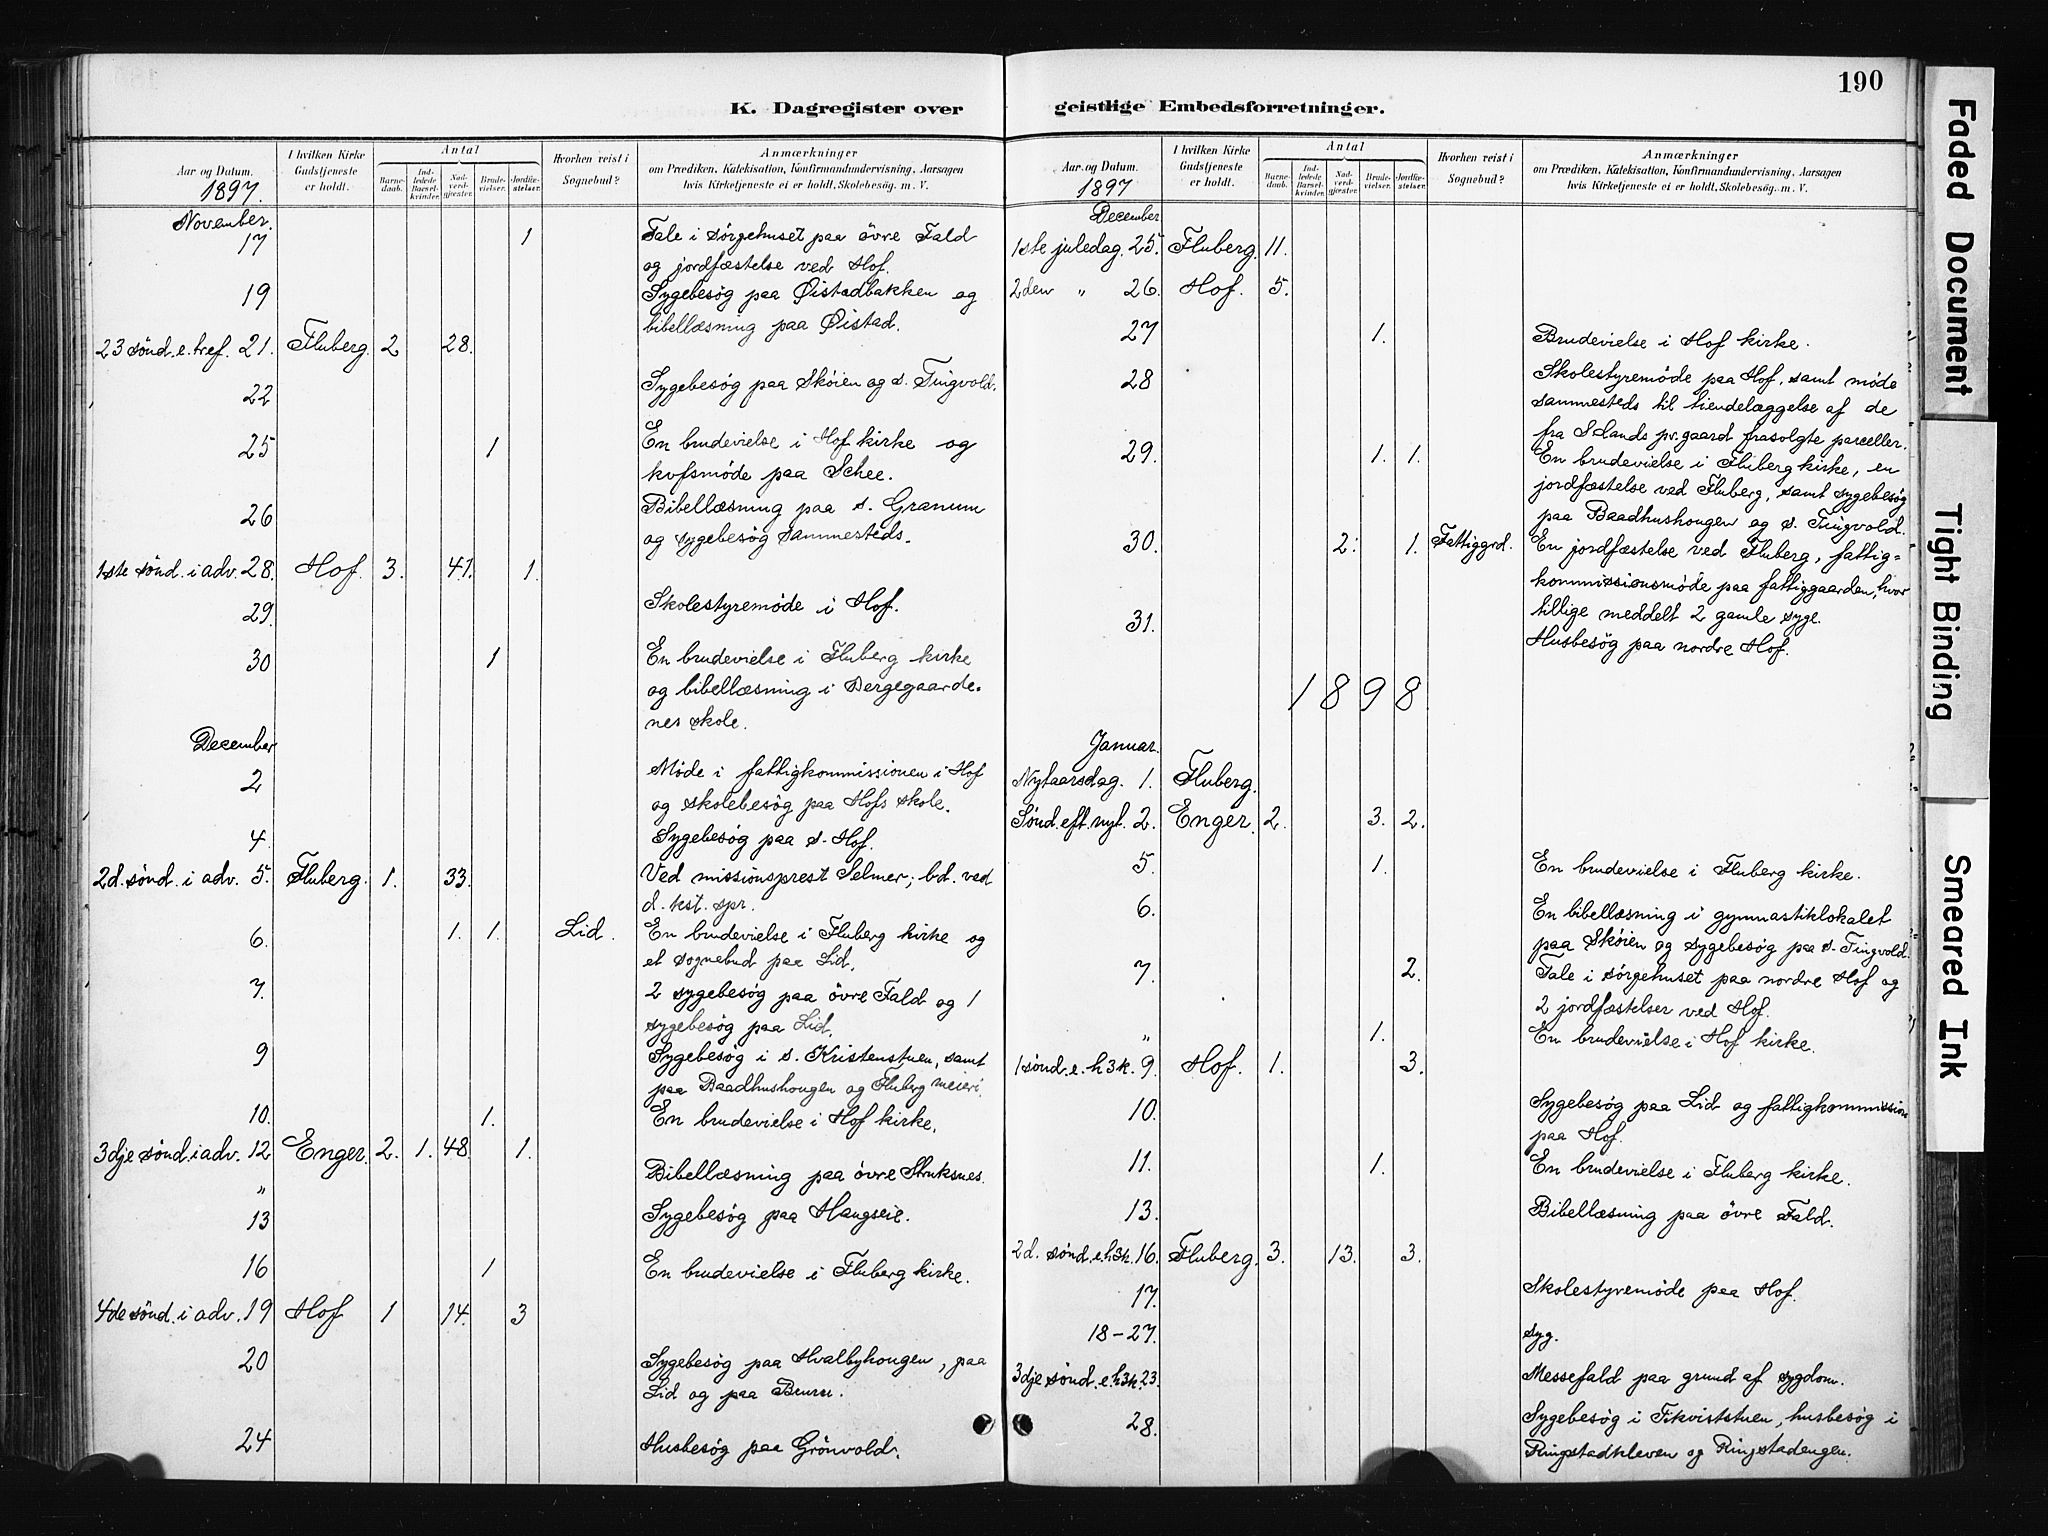 K. Dagregister over
Aar og Datum. 1897.
I hvilken Kirke Gudstjeneste er holdt.
Antal
Barnedaab.
Indledede Barselkvinder.
Nadverdgjester.
Brudevielser.
Jordfæstelser.
Hvorhen reist i Sognebud?
Anmærkninger
om Prædiken, Katekisation, Konfirmandundervisning, Aarsagen
hvis Kirketjeneste ei er holdt, Skolebesøg. m. V.
November.
17 1 Tale i sörgehuset paa övre Fald
og jordfæstelse ved Hof.
19 Sygebesög paa Øistadbakken og
bibellæsning paa Øistad.
23 sönd. e. tref. 21. Fluberg. 2 28.
22 Sygebesög paa Sköien og s. Tingvold.
25 1 En brudevielse i Hof kirke og
kvfsmöde paa Schee.
26 Bibellæsning paa s. Granum
og sygebesög sammesteds.
1ste sönd. i adv. 28. Hof. 3. 41. 1.
29. Skolestyremöde i Hof.
30 1 En brudevielse i Fluberg kirke
og bibellæsning i Bergegaarde-
nes skole.
December
2 Möde i fattigkommissionen i Hof
og skolebesög paa Hofs skole.
4. Sygebesög paa s. Hof.
2d. sönd. i adv. 5. Fluberg. 1. 33. Ved missionsprest Selmer; bd. ved
d. kst. spr.
6. 1. 1. Lid. En brudevielse i Fluberg kirke og
et sognebud paa Lid.
7. 2 sygebesög paa övre Fald og 1
sygebesög paa Lid.
9 Sygebesög i s. Kristenstuen, samt
paa Baadhushougen og Fluberg meieri.
10. 1. En brudevielse i Hof kirke.
3dje sönd. i adv. 12 Enger. 2. 1. 48. 1.
" Bibellæsning paa övre Skruksnes.
13 Sygebesög paa Haugseie.
16 1 En brudevielse i Fluberg kirke.
4de sönd. i adv. 19 Hof 1 14. 3
20 Sygebesög paa Hvalbyhougen, paa
Lid og paa
24 Husbesög paa Grönvold.
190
geistlige Embedsforretninger.
Aar og Datum. 1897
I hvilken Kirke Gudstjeneste er holdt.
Antal
Barnedaab.
Indledede Barselkvinder.
Nadverdgjester.
Brudevielser.
Jordfæstelser.
Hvorhen reist i Sognebud?
Anmærkninger
om Prædiken, Katekisation, Konfirmandundervisning, Aarsagen
hvis Kirketjeneste ei er holdt, Skolebesøg. m. V.
December
1ste juledag. 25. Fluberg. 11.
2den " 26. Hof. 5.
27 1. Brudevielse i Hof kirke.
28 Skolestyremöde paa Hof, samt möde
sammesteds til tiendelæggelse af de
fra S. Lands pr.gaard frasolgte parceller.
29. 1. 1. En brudevielse i Fluberg kirke, en
jordfæstelse ved Fluberg, samt sygebesög
paa Baadhushougen og s. Tingvold.
30. 2. 1. Fattiggrd. En jordfæstelse ved Fluberg, fattig=
kommissionsmöde paa fattiggaarden, hvor
tillige meddelt 2 gamle syge.
31. Husbesög paa nordre Hof.
1898
Januar.
Nytaarsdag. 1. Fluberg.
Sönd. eft. nyt. 2. Enger. 2. 3. 2.
5. 1. En brudevielse i Fluberg kirke.
6. En bibellæsning i gymnastiklokalet
paa Sköien og sygebesög paa s. Tingvold.
7. 2. Tale i sörgehuset paa nordre Hof og
2 jordfæstelser ved Hof.
" 1. En brudevielse i Hof kirke.
1 sönd. e. h3k. 9. Hof. 1. 3.
10. Sygebesög paa Lid og fattigkommission
paa Hof.
11. 1. En brudevielse i Fluberg kirke.
13. Bibellæsning paa övre Fald.
2d. sönd. e. h3k. 16. Fluberg. 3. 13. 3.
17. Skolestyremöde paa Hof.
18-27. syg.
3dje sönd. e. h3k. 23. Messefald paa grund af sygdom.
28. Sygebesög i Fikviststuen, husbesög i
Ringstadkleven og Ringstadengen.
Faded Document
Tight Binding
Smeared Ink